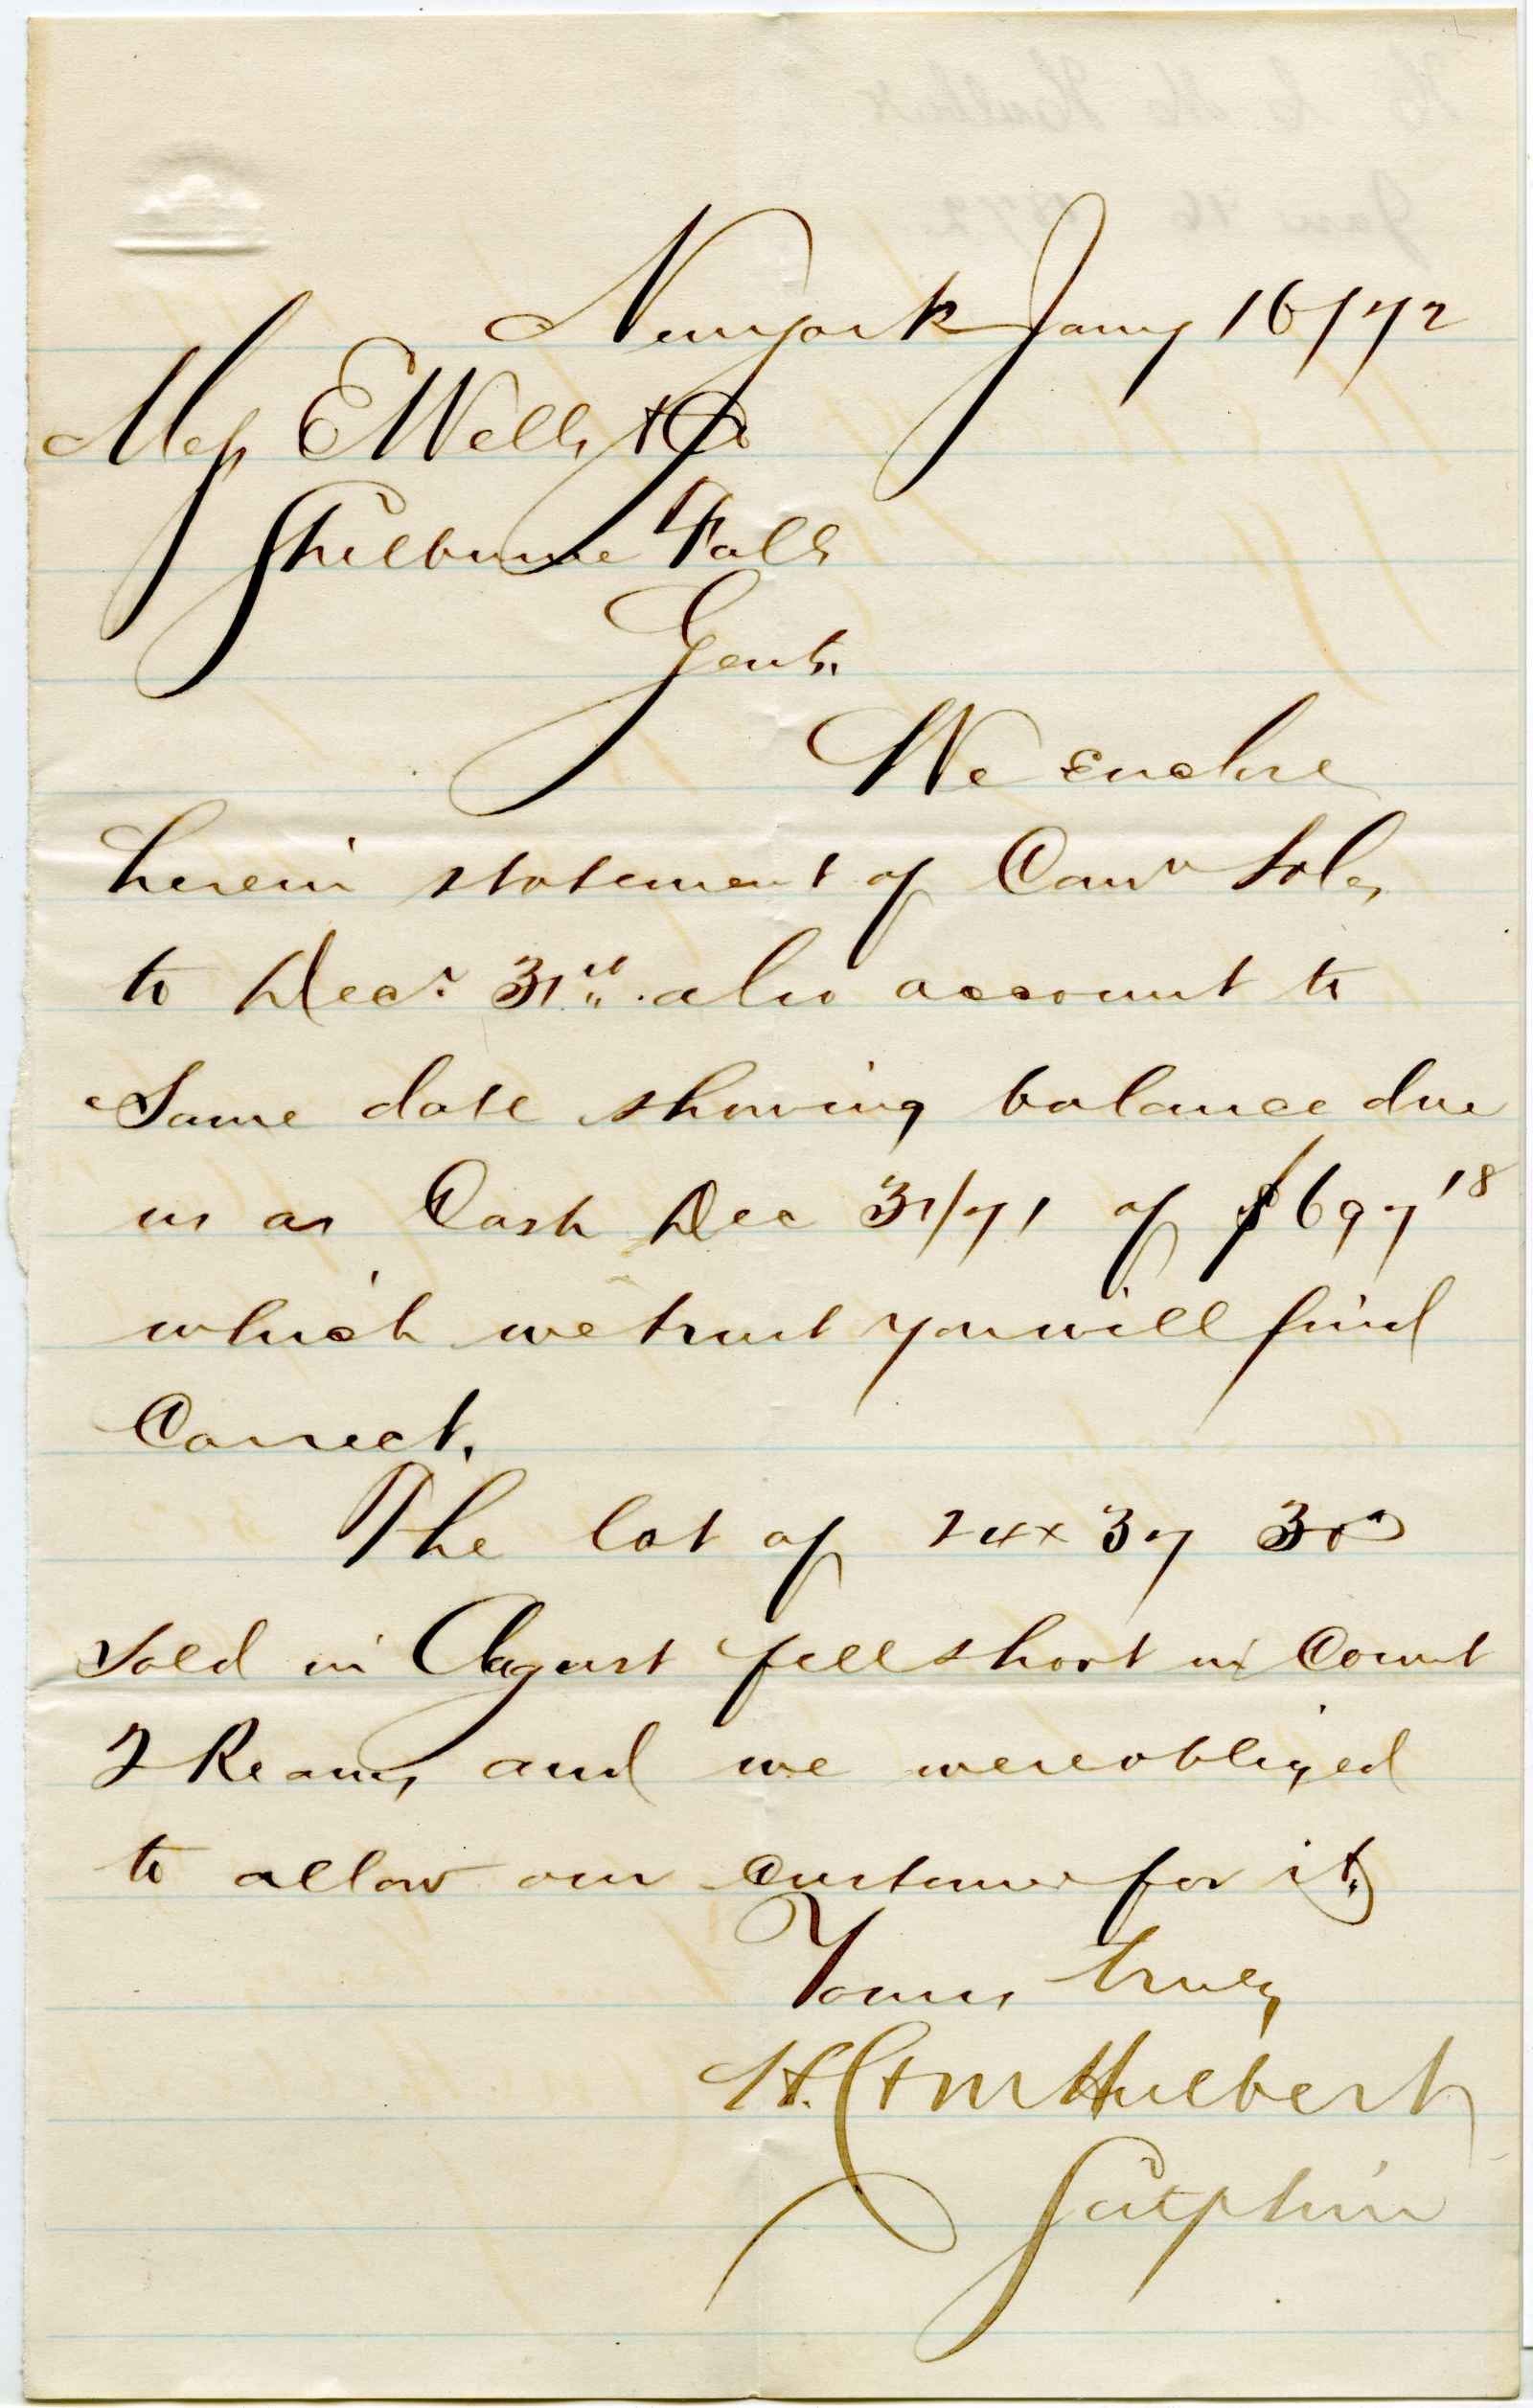 New York Jany 16/72
Mess E Wells & Co
Shelburne Falls
Gents.
We Enclose
herein statement of Conn Sales
to Decr 31st. also account to
Same date showing balance due
us as Cash Dec 31/71 of $697 18
which we trust you will find
Correct.
The lot of 24x37 30
Sold in August fell short in Count
2 Reams, and we were obliged
to allow our customer for it,
Yours truly
H. C & M Hulbert
Sutphin